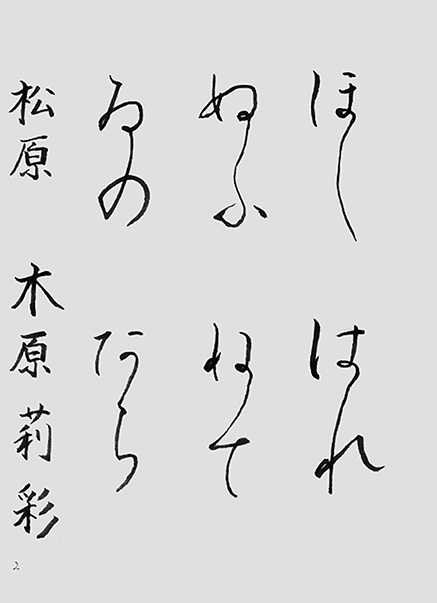 ほし　はれ
ぬふ　ねて
ゐの
松原　木原莉彩
2